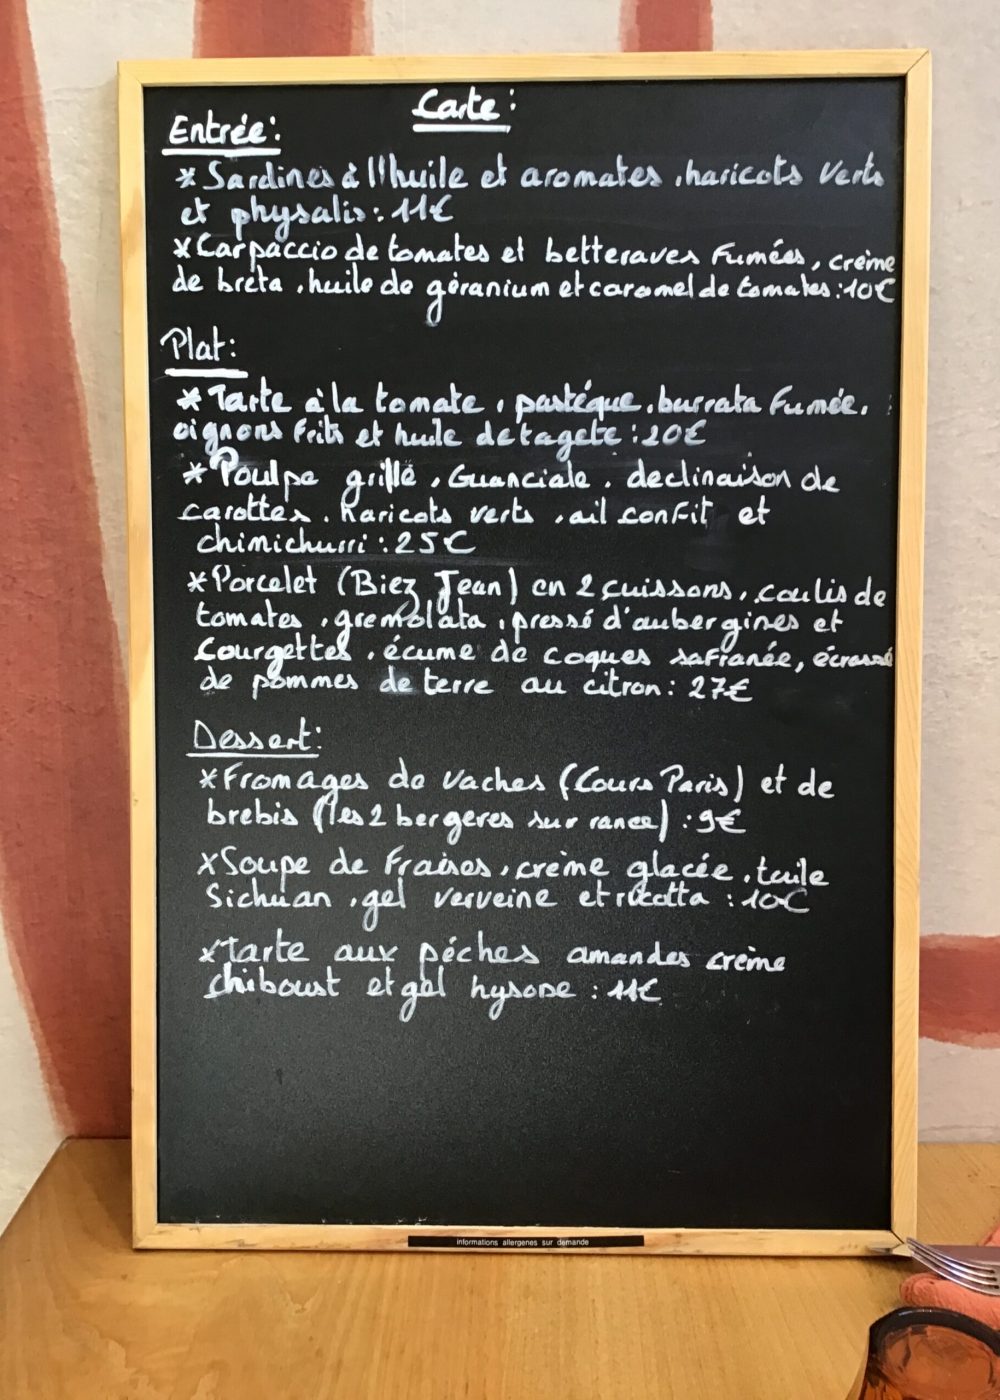 Carte:
Entrée:
* Sardines à l'huile et aromates, haricots verts
et physalis: 11€
* Carpaccio de tomates et betteraves fumées, crème
de breta, huile de géranium et caramel de tomates: 10€
Plat:
* Tarte à la tomate, pastéque, burrata fumée,
oignons frits et huile de tagete: 20€
* Poulpe grillé, Guanciale, declinaison de
carottes, haricots verts, ail confit et
chimichurri: 25€
* Porcelet (Biez Jean) en 2 cuissons, coulis de
tomates, gremolata, pressé d'aubergines et
courgettes, écume de coques safranée, écrassé
de pommes de terre au citron: 27€
Dessert:
* Fromages de vaches (Cours Paris) et de
brebis (les 2 bergeres sur rance): 9€
* Soupe de fraises, crème glacée, tuile
Sichuan, gel verveine et ricotta: 10€
* tarte aux péches amandes crème
chiboust et gel hysope: 11€
informations allergenes sur demande